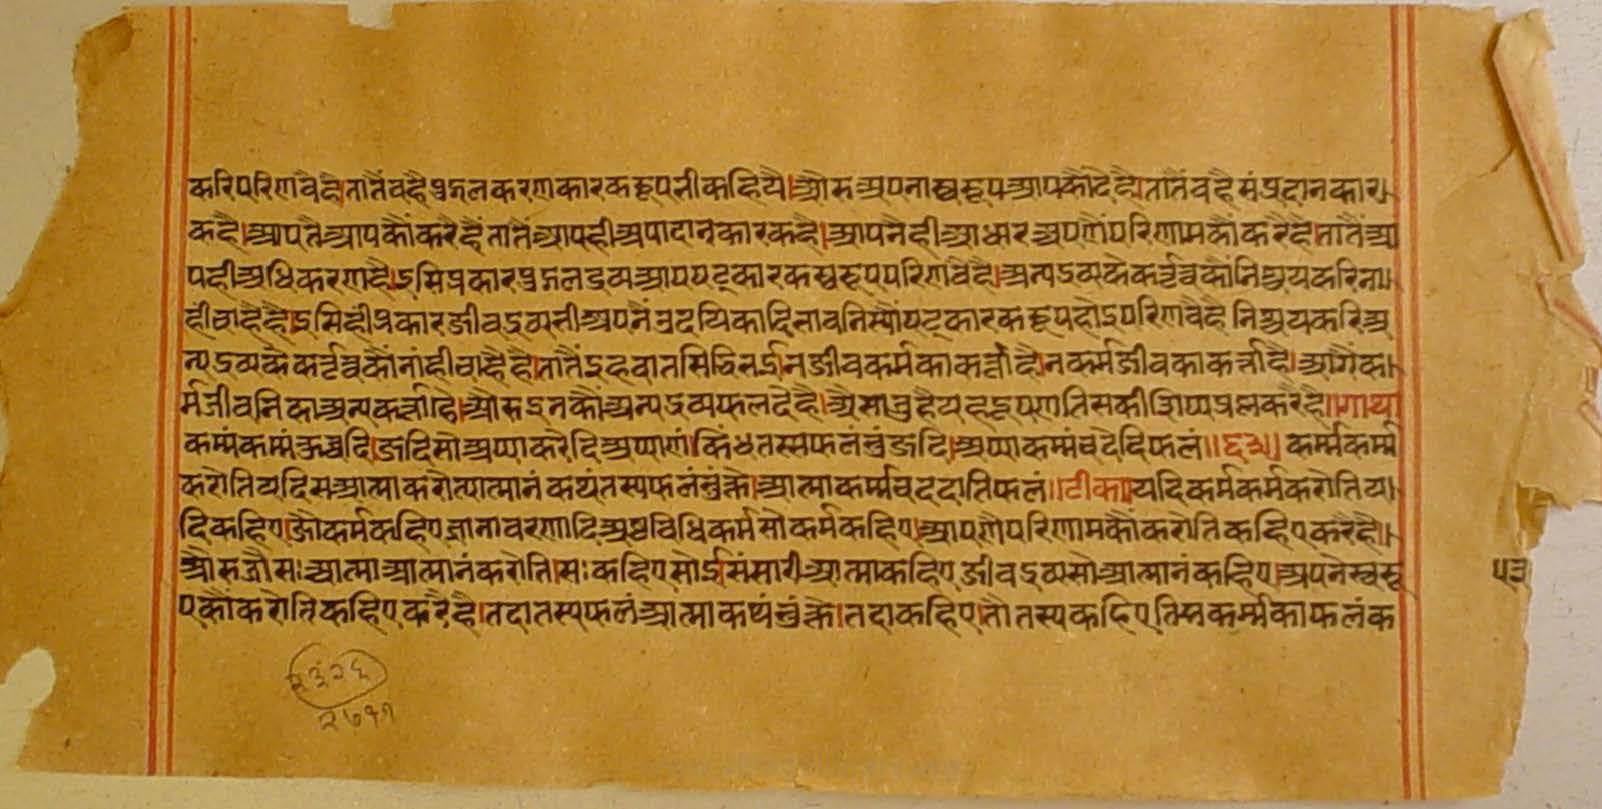 करिपरिणवैहै।तातैंवहैपुद्गलकरणकारकरूपभीकहियै।औरुअपनास्वरूपआपकौंदेहै।तातैंवहैसंप्रदानकार
कहै।आपतैआपकौंकरैहैंतातैंआपहीअपादानकारकहै।आपनैहीआधारअपणैंपरिणामकौंकरैहै।तातैंआ
पहीअधिकरणहै।इसिप्रकारपुद्गलद्रव्यआपषट्कारकस्वरूपपरिणवैहै।अन्यद्रव्यकेकर्तृत्वकौंनिश्चयकरिना
हींचाहैहै।इसिहीप्रकारजीवद्रव्यभीअपनैंउदयिकादिभावनिस्यौंषट्कारकरूपहोइपरिणवैहैनिश्चयकरिअ
न्यद्रव्यकेकर्तृत्वकौंनांहीचाहैहै।तातैंइहबातसिद्धिभईनजीवकर्मकाकर्त्ताहै।नकर्मजीवकाकर्त्ताहै।आगैंक
र्मजीवनिकाअन्यकर्त्ताहै।औरुइनकौंअन्यद्रव्यफलदेहै।ऐसाजुहैयहदूषणतिसकीशिष्यप्रश्नकरैहै॥गाथा
कम्मंकम्मंकुव्वदि।जदिसोअप्पाकरेदिअप्पाणं।किंधतस्सफलंभुंजदि।अप्पाकम्मंचदेदिफलं॥६३॥कर्म्मकर्म्म
करोतियदिसआत्माकरोत्यात्मानंकथंतस्यफलंभुंक्ते।आत्माकर्म्मचददातिफलं॥टीका॥यदिकर्मकर्मकरोतिय
दिकहिए।जौकर्मकहिएज्ञानावरणादिअष्टविधिकर्मसोकर्मकहिए।आपणौपरिणामकौंकरोतिकहिएकरैहै।
औरुजौसःआत्माआत्मानंकरोति।सःकहिएसोईसंसारीआत्माकहिएजीवद्रव्यसोआत्मानंकहिए।अपनेस्वरू
पकौंकरोतिकहिएकरैहै।तदातस्यफलंआत्माकथंभुंक्ते।तदाकहिए।तौतस्यकहिएतिसकर्म्मकाफलंक
५३
२३२६
२७११